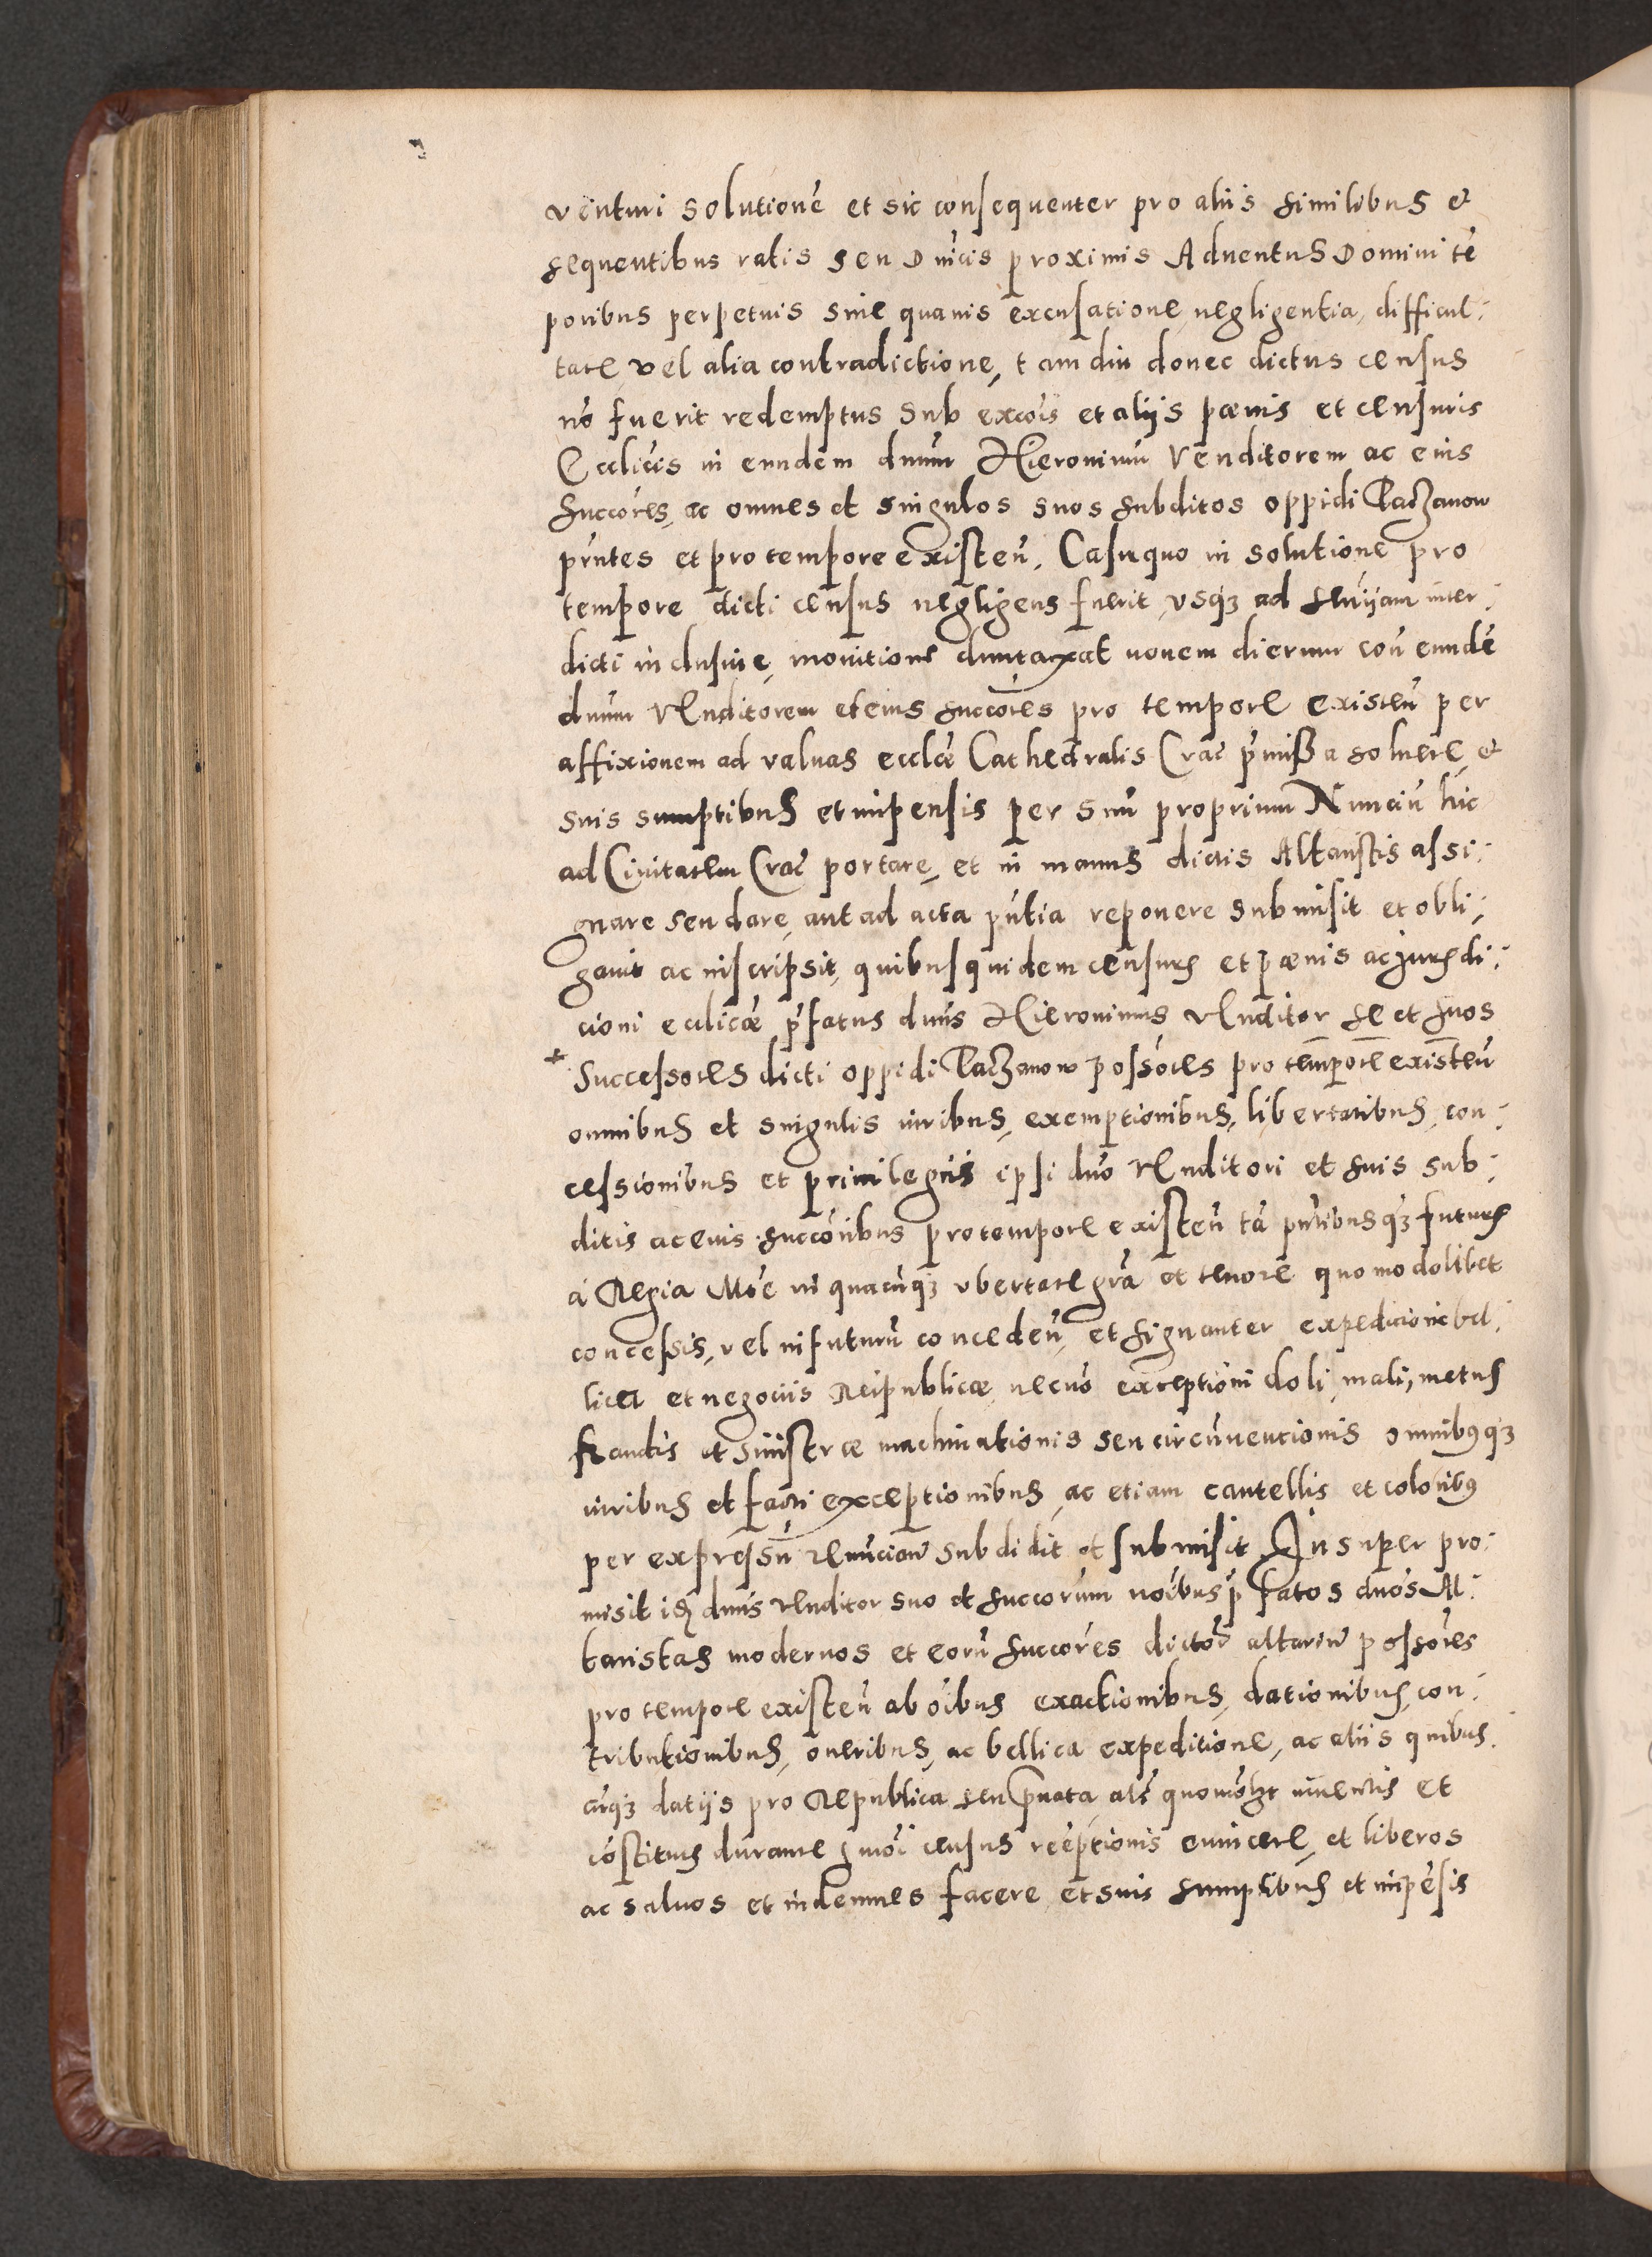 venturi solutionē et sic consequenter pro aliis similibus &
sequentibus ratis seu Dnicis proximis Aduentus Domini tē
poribus perpetuis sine quauis excusatione, negligentia, difficul:
tate, vel alia contradictione, tam diu donec dictus census
nō fuerit redemptus Sub excōis et aliis pœnis et censuris
Eccliicis in eundem dnum Hieronimū Venditorem ac eius
succōres, ac omnes et singulos suos subditos oppidi Paczanow
prntes et pro tempore existeñ. Casuquo in solutione pro
tempore dicti census negligens fuerit, vsq3 ad inter:
dicti inclusiue, monitione duntaxat nouem dierum coñ eundē
dnum Venditorem et eius succōres pro tempore existeñ per
affixionem ad valuas ecclæ Cathedralis Crac̃ p̄missa soluere, &
suis sumptibus et impensis per suū proprium Nunciū hic
ad Ciuitatem Crac̃ portare, et in manus dictis Altaristis assi:
gnare seu dare, aut ad acta pñtia reponere submisit et obli:
gauit ac inscripsit, quibusquidem censuris et pœnis ac jurisdi:
cioni ecclicæ p̄fatus dnus Hieronimus Venditor se et suos
+ Successores dicti oppidi Paczanow possores pro tempore existeñ
omnibus et singulis iuribus, exemptionibus, libertatibus, con:
cessionibus et priuilegiis ipsi dno Venditori et suis sub:
ditis ac eius succōribus pro tempore existeñ tā pñtibus q3 futuris
à Regia Mte in quacūq3 vbertate grā et tenore quomodolibet
concessis, vel in futurū concedeñ, et signanter expedicioni bel:
licæ et negociis Reipublicæ, necnō exceptioni doli, mali, metus
fraudis et sinistræ machinationis seu circūuencionis omnibusq3
iuribus et facti exceptionibus, ac etiam cautellis et coloribus
per expressū renuncian̄ subdidit et submisit Insuper pro:
misit idē dnus Venditor suo et succorum noibus p̄fatos dnos Al:
taristas modernos et eorū succōres dictor̄ altarium possores
pro tempore existeñ ab oibus exactionibus, dationibus, con:
tributionibus, oneribus, ac bellica expeditione, ac aliis quibus:
cūq3 datijs pro Republica seu priuata als̄ quomōlibet inuentis et
cōstitutis durante hmōi census reēptionis euincere, et liberos
ac saluos et indemnes facere, et suis sumptibus et impēsis